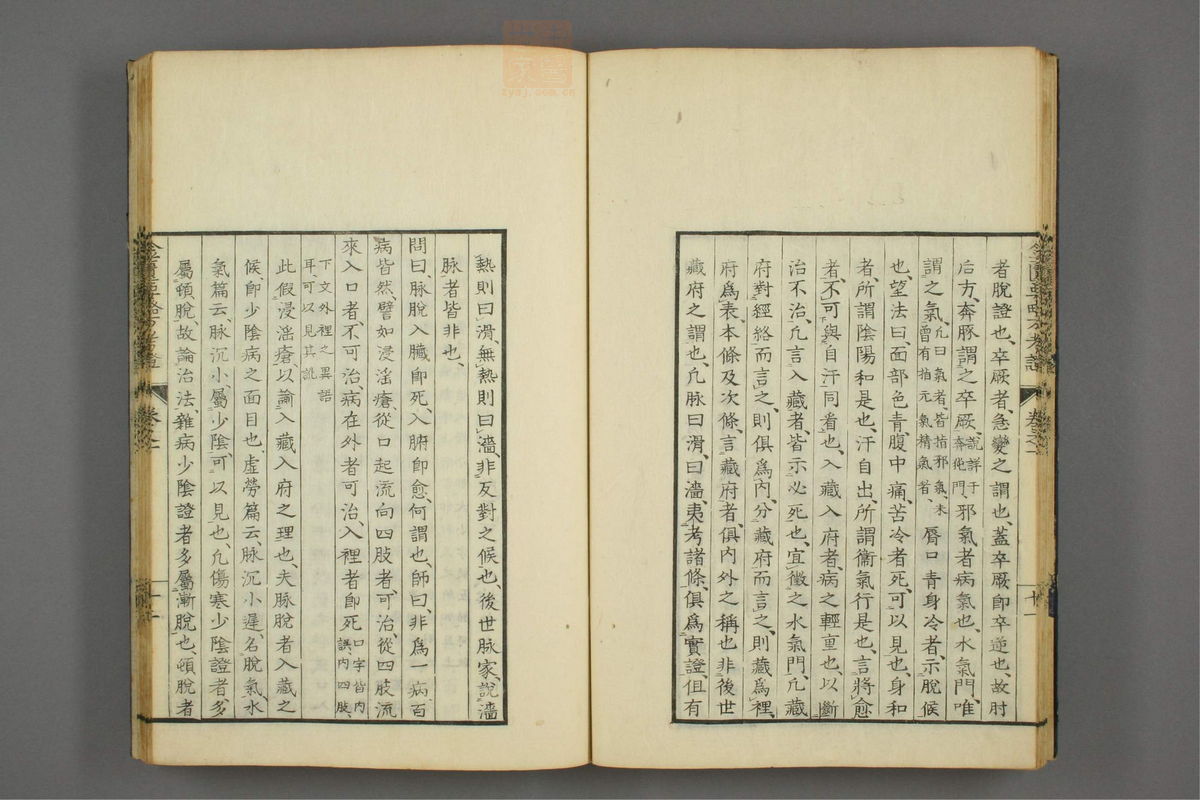 者脫證也、卒厥者、急變之謂也、蓋卒厥卽卒逆也、故肘
后方、奔豚謂之卒厥、說詳于奔豚門、邪氣者病氣也、水氣門、唯
謂之氣、凡曰氣者、皆指邪氣、未曾有指元氣精氣者、脣口青身冷者、示脫候
也、望法曰、面部色青、腹中痛、苦冷者死、可以見也、身和
者、所謂陰陽和是也、汗自出、所謂衞氣行是也、言將愈
者、不可與自汗同看也、入藏入府者、病之輕重也、以斷
治不治、凡言入藏者、皆示必死也、宜徵之水氣門、凡藏
府對經絡而言之、則俱爲內、分藏府而言之、則藏爲裡、
府爲表、本條及次條、言藏府者、俱內外之稱也、非後世
藏府之謂也、凡脉曰滑、曰濇、夷考諸條、俱爲實證、但有
熱則曰滑、無熱則曰濇、非反對之候也、後世脉家說濇
脉者皆非也、
問曰、脉脫入臟卽死、入腑卽愈、何謂也、師曰、非爲一病百
病皆然、譬如浸淫瘡、從口起流向四肢者、可治、從四肢流
來入口者、不可治、病在外者可治、入裡者卽死、口字皆內誤、內四肢
下文外裡之異語耳、可以見其訛
此假浸淫瘡、以諭入藏入府之理也、夫脉脫者入藏之
候、卽少陰病之面目也、虛勞篇云、脉沉小遲、名脫氣、水
氣篇云、脉沉小、屬少陰、可以見也、凡傷寒少陰證者、多
屬頓脫、故論治法、雜病少陰證者多屬漸脫也、頓脫者
金匱要略方考證 卷之一 十一